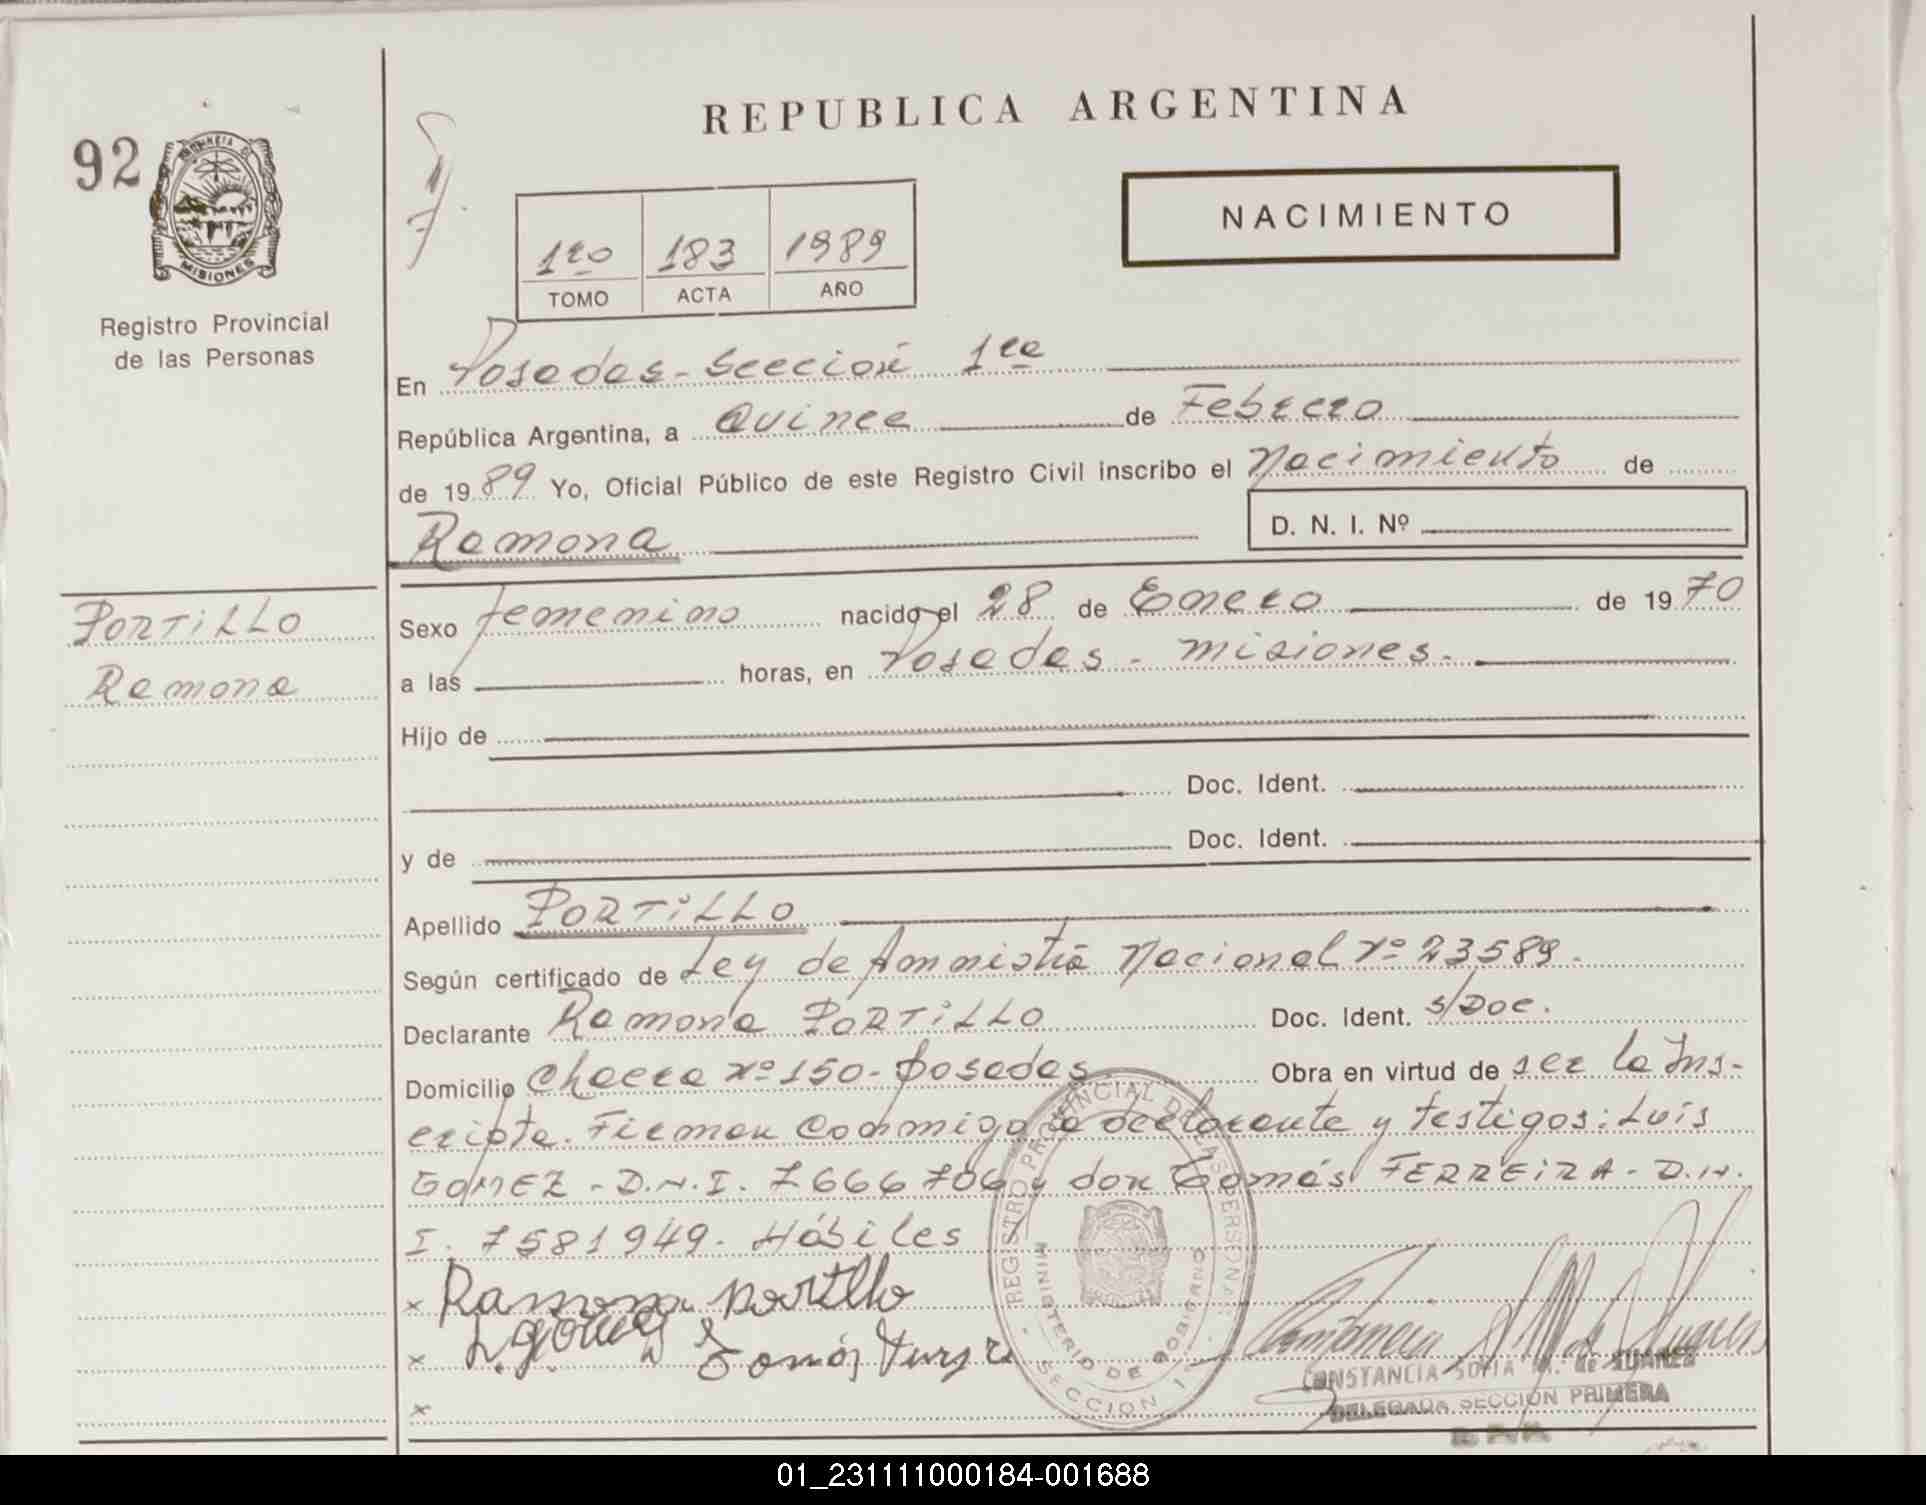 REPUBLICA ARGENTINA
92
PROVINCIA DE
MISIONES
Registro Provincial
de las Personas
1ro 183 1989
TOMO ACTA AÑO
NACIMIENTO
En Posadas - Sección 1ra
República Argentina, a Quince de Febrero
de 1989 Yo, Oficial Público de este Registro Civil inscribo el Nacimiento de
Ramona
D. N. I. Nº
PORTiLLO
Ramona
Sexo femenino nacido el 28 de Enero de 1970
a las horas, en Posadas - Misiones.
Hijo de
Doc. Ident.
y de Doc. Ident.
Apellido PORTiLLO
Según certificado de Ley de Amnistia Nacional Nº 23589.
Declarante Ramona PORTiLLO Doc. Ident. s/Doc.
Domicilio Chacra Nº 150 - Posadas Obra en virtud de ser la Ins-
cripta. Firman conmigo la declarante y testigos: Luis
GOMEZ - D.N.I. 7666706 y don Tomás FERREiRA - D.N.
I. 7581949. Hábiles
x Ramona Portillo
x L. gomez Tomás
x
REGISTRO PROVINCIAL DE LAS PERSONAS
MINISTERIO DE GOBIERNO
SECCION 1
CONSTANCIA SOFIA M. de SUAREZ
DELEGADA SECCION PRIMERA
01_231111000184-001688